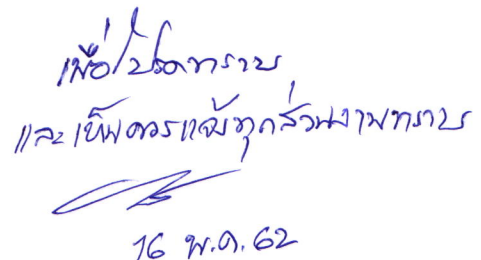 เพื่อโปรดทราบ
และเห็นควรแจ้งทุกส่วนงานทราบ
16 พ.ค. 62